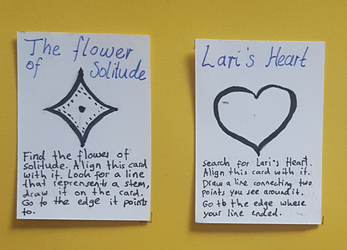 The flower
of Solitude
Find the flower of
solitude. Align this card
with it. Look for a line
that reprensents a stem,
draw it on the card.
Go to the edge it points
to.
Lari's Heart
Search for Lari's Heart.
Align this card with it.
Draw a line connecting two
points you see around it.
Go to the edge where
your line ended.